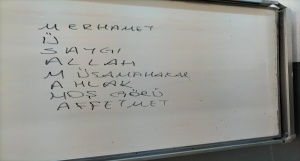 MERHAMET
Ü
SAYGI
ALLAH
MÜSAMAHAKAR
AHLAK
HOŞ GÖRÜ
AFFETMET